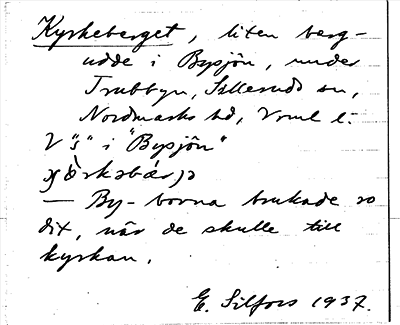 Kyrkeberget, liten berg-
udde i Bysjön, under
Trubbyn, Sillerud sn,
Nordmarks hd, Vrml l.
V "s" i "Bysjön"
— By-borna brukade ro
dit, när de skulle till
kyrkan.
E. Silfors 1937.